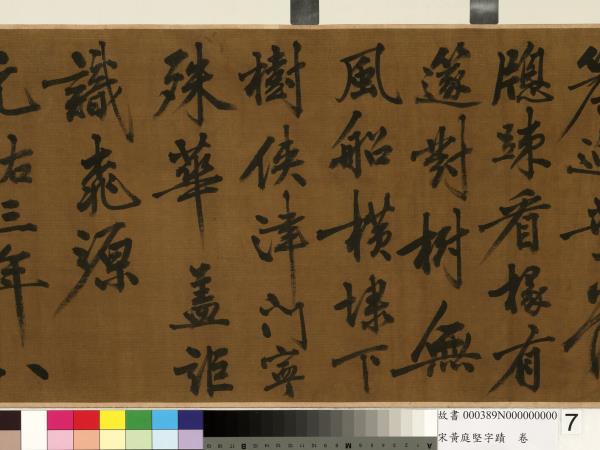 牕疎看椽有
邃對樹無
風船橫埭下
樹俠津門寧
殊華蓋詎
識桃源
元祐三年八
故書 000389N000000000
宋黃庭堅字蹟 卷
7